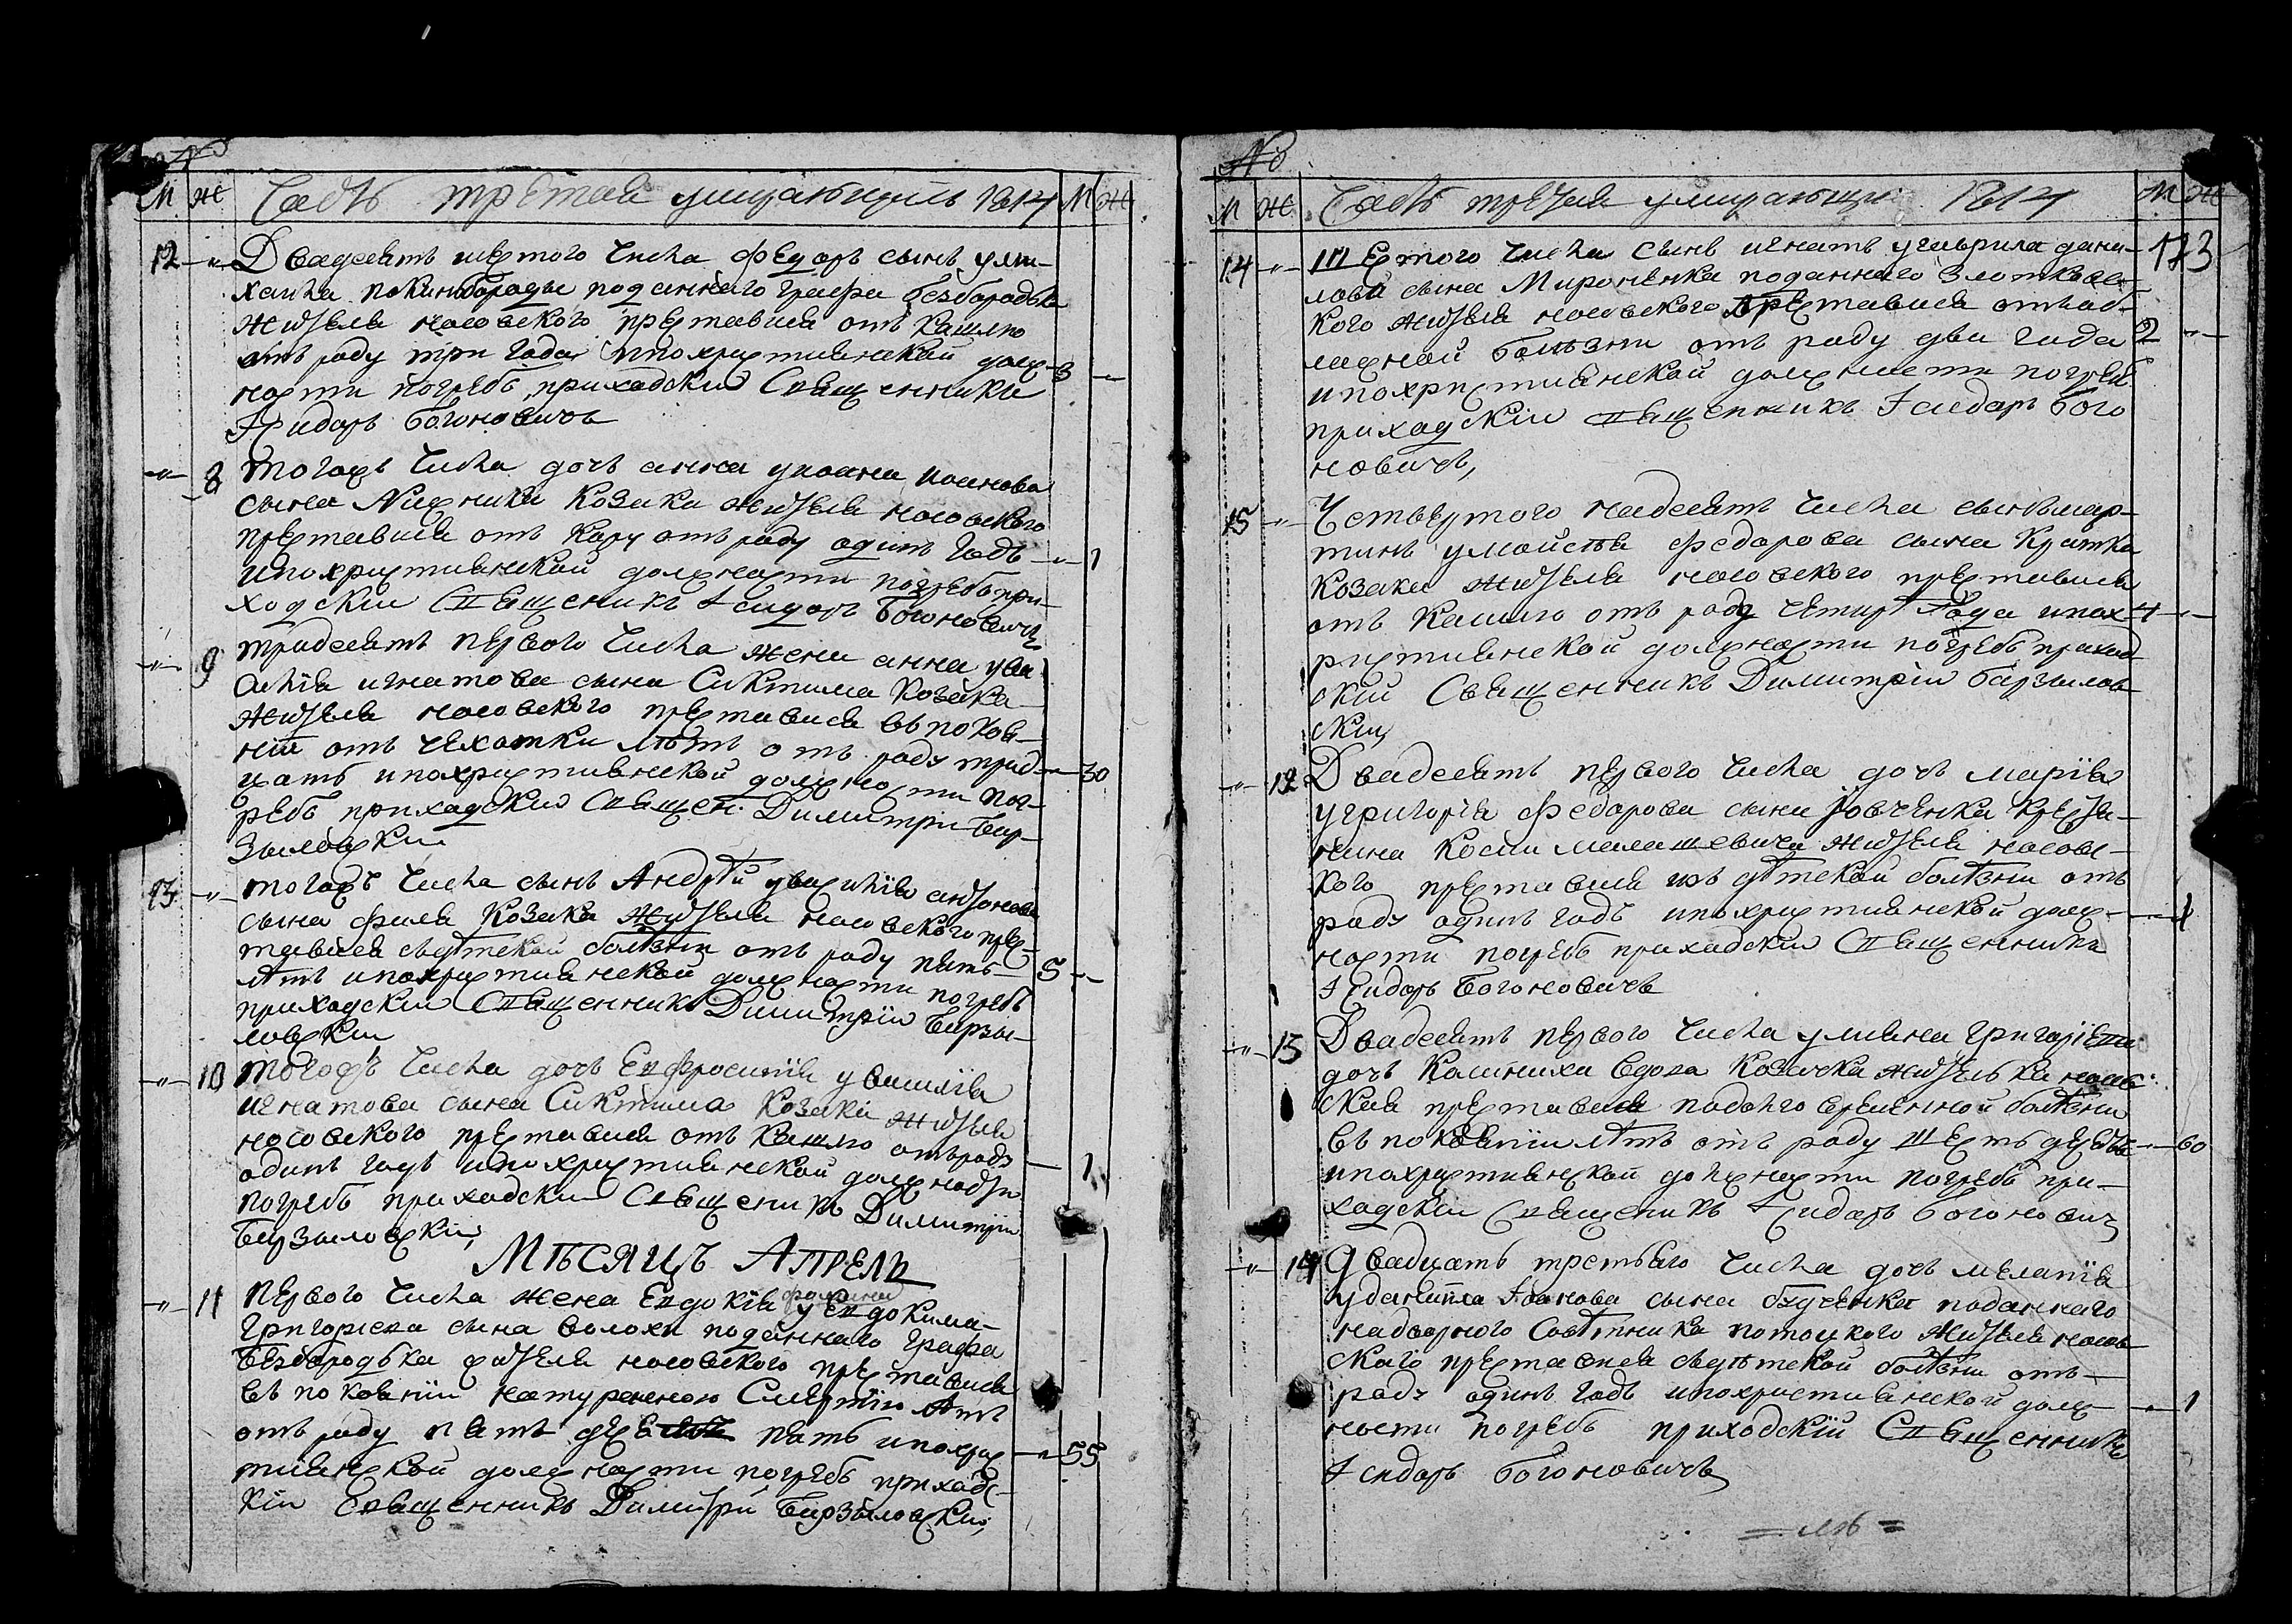 М Ж Часть третая умирающихъ 1814 М Ж
12 Двадесять шестого числа федоръ сынъ у ми-
хаила подданнаго графа безбородька
жителя носовского преставися отъ кашлю
отъ роду три года и похристиянской долж- 3
ности погребъ приходский Священникъ
Ісидоръ Богоновичъ
8 тогожъ числа дочъ анна у иоана иоанова
сына козака жителя носовского
преставися отъ кору отъ роду одинъ годъ 1
и похристиянской должности погребъ при-
ходскій Священикъ Ісидоръ Богоновичъ
9 тридесять первого числа жена анна у ва
силія игнатова сына Сиктима козака
жителя носовского преставися въ покая-
ніи отъ чехотки лѣтъ отъ роду трид- 30
цать и похристиянской должности пог-
ребъ приходский Священ. Димитри Бир-
зыловский
13 тогожъ числа сынъ Андрѣй у василія антонова
сына филя козака жителя носовского прес-
тавися дѣтской болѣзни отъ роду пять 5
лѣтъ и похристиянской должности погребъ
приходский Священникъ Димитрій Бирзы-
ловский
10 тогожъ числа дочъ Евфросинія у василія
игнатова сына Сиктима козака жителя
носовского преставися отъ кашлю отъ роду
одинъ годъ и похристиянской должности 1
погребъ приходский Священикъ Димитрій
Бирзыловский,
МѢСЯЦЪ АПРЕЛЬ
11 первого числа жена Евдокія у Евдокима
Григориева сына волохи подданнаго графа
Безбородька жителя носовского преставися
въ покаяніи натуралною Смертію лѣтъ
отъ роду пять десять пять и похрис 55
тиянской должности погребъ приходс-
кій Священникъ Димитрій Бирзыловский,
М Ж Часть третая умирающихъ 1814 М Ж
173
14 Шестого числа сынъ игнатъ у гаврила дани-
лова сына Мироненка подданнаго
кого жителя носовского преставися отъ
болѣзни отъ роду два года 2
и похристиянской должности погребъ
приходскій Священникъ Ісидоръ Бого
новичъ,
15 Четвертого надесять числа сынъ мар-
тинъ у моисея федорова сына Кратка
козака жителя носовского преставися
отъ кашлю отъ роду четири года и пох- 4
ристиянской должности погребъ приход
ский Священникъ Димитрій барзылов
ский,
12 Двадесять первого числа дочъ марія
у григорія федорова сына Йовченка крестя-
нина косми малашевича жителя носовс-
кого преставися изъ дѣтской болѣзни отъ
роду одинъ годъ и похристиянской долж- 1
ности погребъ приходский Священникъ
Ісидоръ Богоновичъ
13 Двадесять первого числа умина
дочъ Калиниха вдова козачка жителька носов
ская преставися подолговременной болѣзни
въ покаяніи лѣтъ отъ роду шесть десять 60
и похристиянской должности погребъ при-
ходскій Священикъ Ісидоръ богоновичъ
14 Двадцать третьяго числа дочъ меланія
у даниила Іоанова сына бученка подданнаго
надворного Совѣтника потоцкого жителя носов
ского преставися дѣтской болѣзни отъ
роду одинъ годъ и похристиянской долж- 1
ности погребъ приходскій Священникъ
Ісидоръ богоновичъ